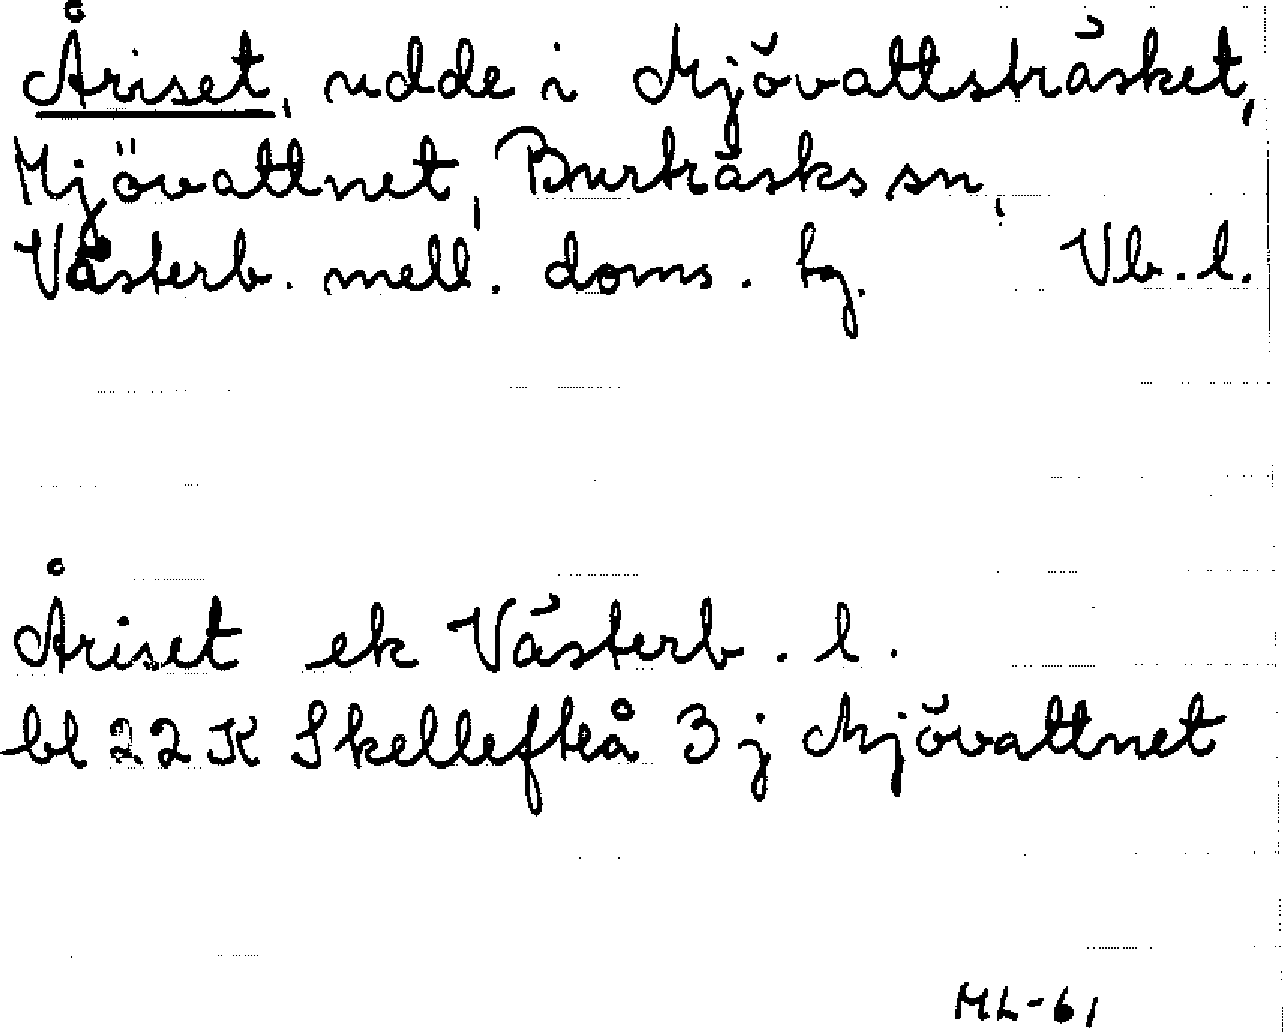 Åriset, udde i Mjövattsträsket,
Mjövattnet, Burträsks sn,
Västerb. mell. doms. tg. Vb. l.
Åriset ek Västerb. l.
bl 22 K Skellefteå 3 j Mjövattnet
ML-61